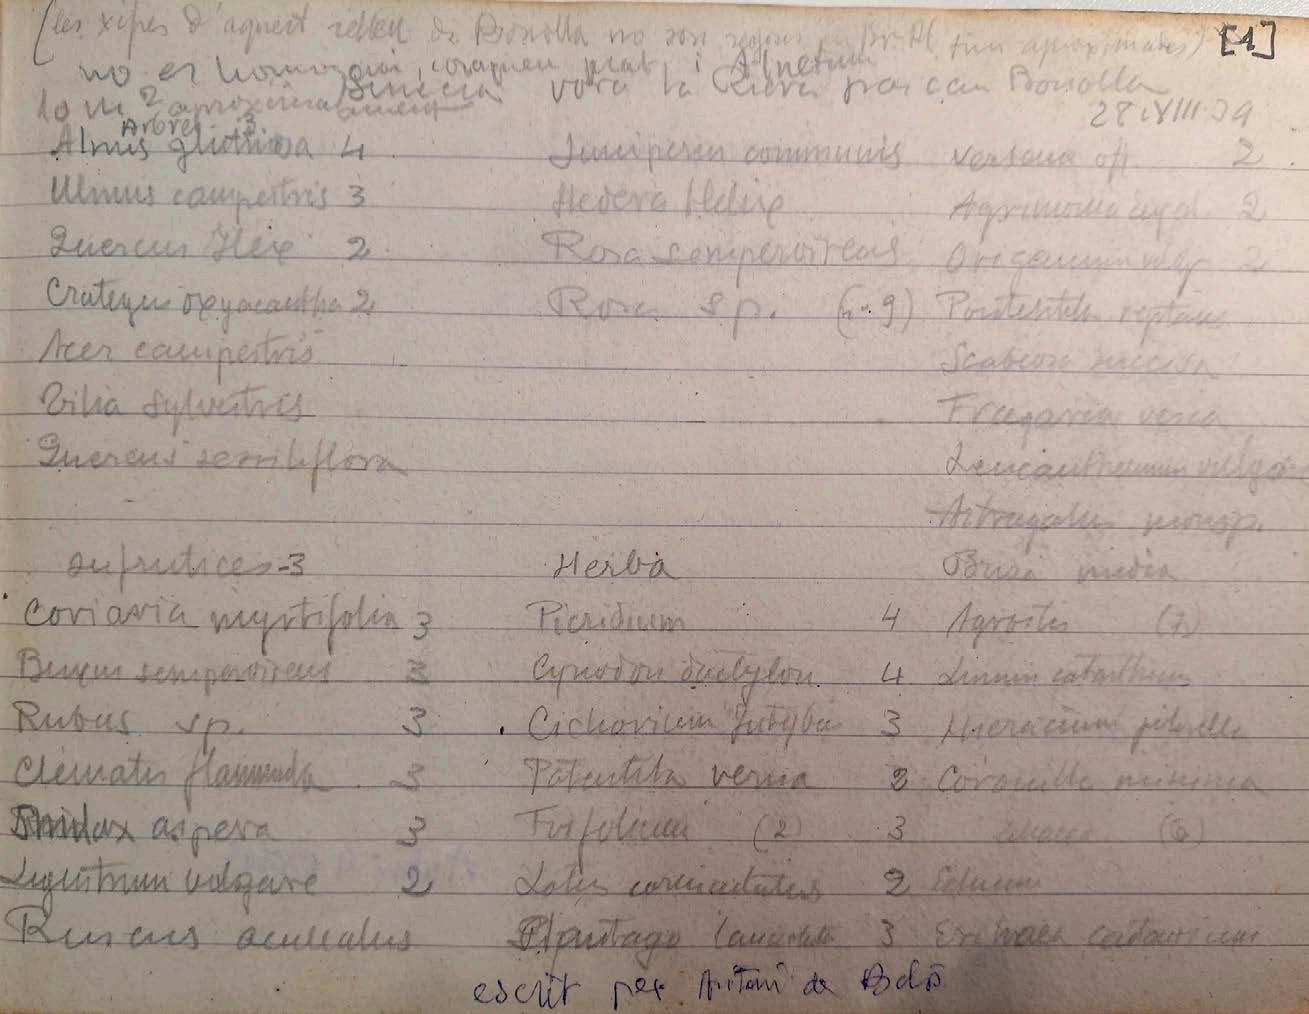 (les xifres d'aquest de Bonolla no són segures aproximades) [1]
no es prat i Alnetum
vora la Riera prop can Bonolla
10 m2 aproximadament
28 VIII 39
Arbres 3
Alnus glutinosa 4
Ulmus campestris 3
Quercus Ilex 2
Crategus oxyacantha 2
Acer campestris
Tilia sylvestris
Quercus sessiliflora
sufrutices-3
Coriaria myrtifolia 3
Buxus sempervirens 3
Rubus sp. 3
Clematis flammula 3
Smilax aspera 3
Ligustrum vulgare 2
Ruscus aculeatus
Juniperus communis
Hedera Helix
Rosa sempervirens
Rosa sp. (n. 9)
Herba
Picridium 4
Cynodon dactylon 4
Cichorium Intybus 3
Potentilla verna 3
Trifolium (2) 3
Lotus corniculatus 2
Plantago lanceolata 3
Verbena off 2
Agrimonia eupat. 2
Origanum vulg. 2
Potentilla reptans
Scabiosa succisa
Fragaria vesca
Leucanthemum vulga
Astragalus monsp.
Briza media
Agrostis (7)
Linum catharticum
Hieracium pilosella
Coronilla minima
(6)
Sedum
Eritraea centaurium
escrit per Antoni de Bolòs